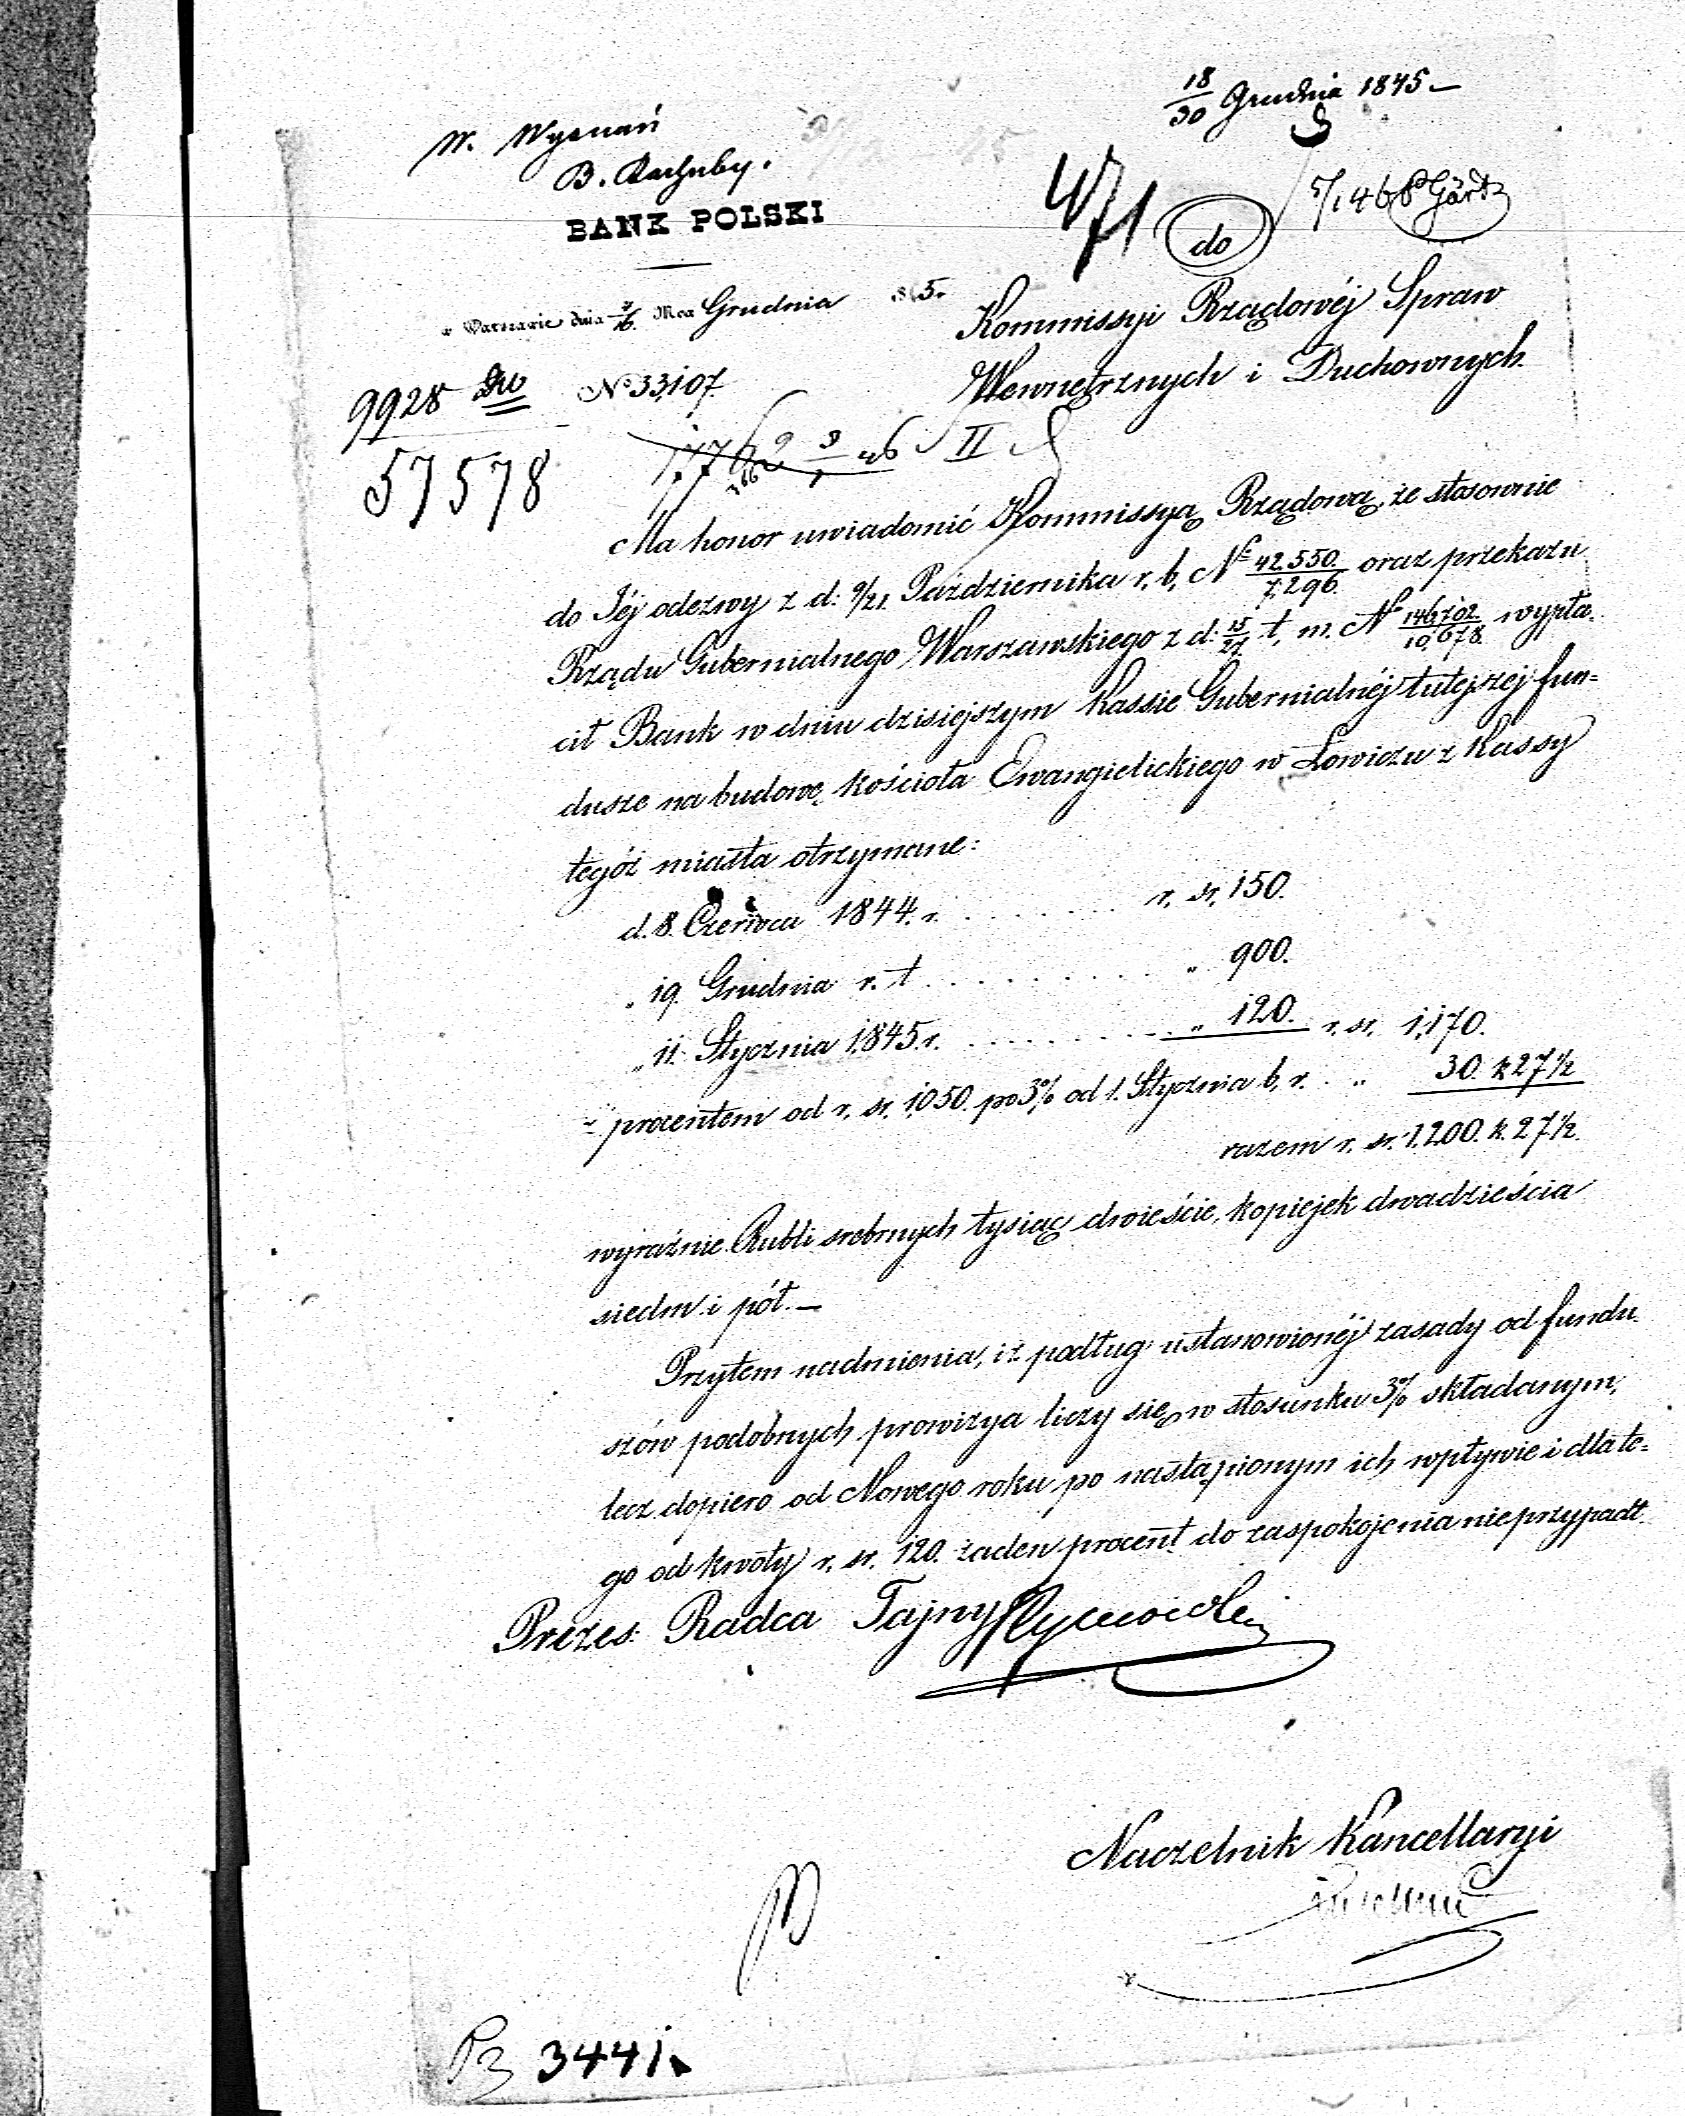 18/30 Grudnia 1845 –
W. Wyznań
B. Rachuby.
BANK POLSKI
471
do
5/1 46 Gärtz
w Warszawie dnia 4/16 Mca Grudnia 1845.
Kommissyi Rządowéj Spraw
Wewnętrznych i Duchownych.
9928
No 33,107.
57578
46 II
Ma honor uwiadomić Kommissyą Rządową, że stosownie
do Jéj odezwy z d: 9/21 Października r. b. No 42,550./7,296. oraz przekazu
Rządu Gubernialnego Warszawskiego z d: 15/27 t. m. No 146,702/10,678. wypła-
cił Bank w dniu dzisiejszym Kassie Gubernialnéj tutejszej fun=
dusze na budowę kościoła Ewangielickiego w Łowiczu z Kassy
tegóż miasta otrzymane:
d. 8. Czerwca 1844. r. . . . . . . . r. sr. 150.
" 19. Grudnia r. t . . . . . . . . " 900.
" 11. Stycznia 1845. r. . . . . . . . " 120. r. sr. 1,170.
z procentem od r. sr. 1050. po 3% od 1. Stycznia b. r. . " 30. k 27 1/2
razem r. sr. 1,200. k. 27 1/2.
wyraźnie Rubli srebrnych tysiąc dwieście, kopiejek dwadzieścia
siedm i pół. –
Przytem nadmienia, iż podług ustanowionéj zasady od fundu-
szów podobnych prowizya liczy się w stosunku 3% składanym,
lecz dopiero od Nowego roku po nastąpionym ich wpływie i dla te=
go od kwoty r. sr. 120. żaden procent do zaspokojenia nieprzypadł.
Prezes Radca Tajny
Naczelnik Kancellaryi
3441